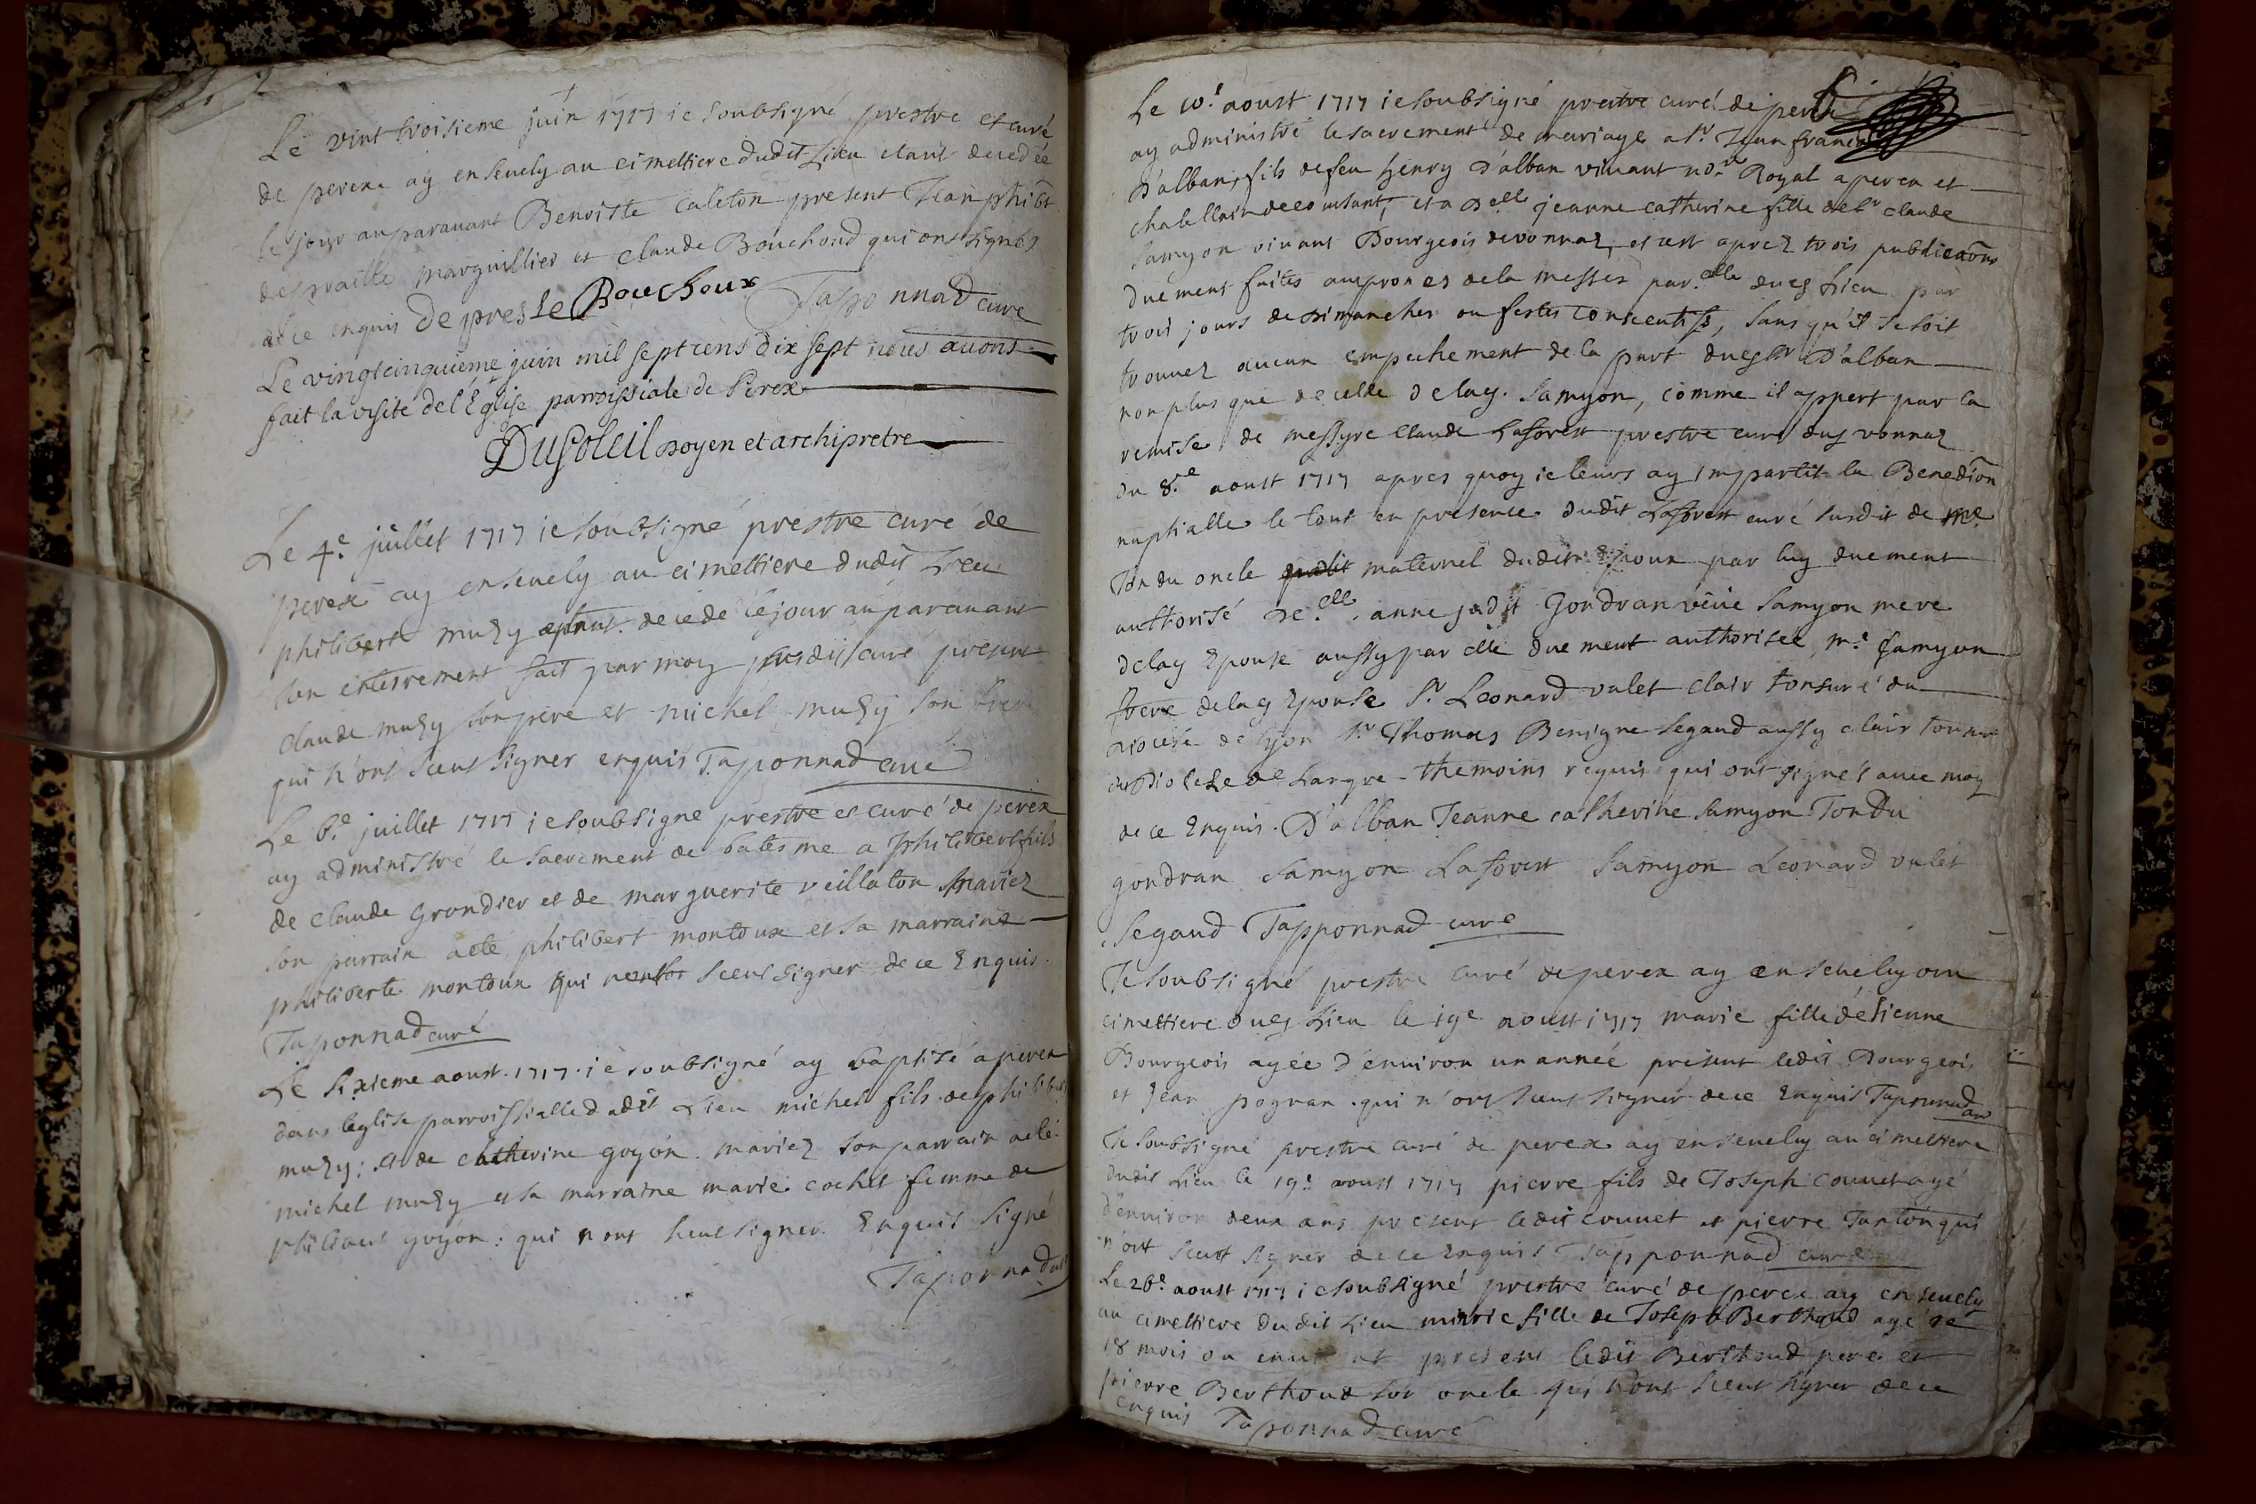 Le vint troisieme juin 1717 ie soubsigné prestre et curé
de perex ay ensevely au cimettiere dudit Lieu etant decedée
le jour auparavant Benoiste Caleton present Jean phibt
despraille marguillier et claude Bouchoud qui ont signés
de ce enquis De pres Le Bouchoux Tapponnad curé
Le vingtcinquieme juin mil sept cens dix sept nous avons
fait la visite de l'Eglise parroissiale de Perex
DuSoleil Doyen et archipretre
Le 4.e juillet 1717 ie soubsigné prestre curé de
perex ay ensevely au cimettiere dudit Lieu
philiberte muzy decede le jour auparavant
son enterrement fait par moy susdit curé present
claude muzy son pere et michel muzy son frere
qui n'ont sceus signer enquis Taponnad curé
Le 6.e juillet 1717 ie soubsigné prestre et curé de perex
ay administré le sacrement de batesme a philibert fils
de claude Grondier et de marguerite veillaton mariez
son parrain a eté philibert montoux et sa marraine
philiberte montoux qui sceus signer de ce Enquis.
Taponnad curé
Le sixieme aoust. 1717. ie soubsigné ay baptisé a perex
dans leglise parroissialle dudit Lieu michel fils de philibert
muzy: et de catherine goyon. mariez son parrain a eté
michel muzy et sa marraine marie cochet femme de
philibert goyon: qui n'ont sceus signer. Enquis signé
Taponnad curé
Le 10.e aoust 1717 ie soubsigné prestre curé de perex
ay administré le sacrement de mariage a Sr. Jean francois
D'alban, fils de feu henry D'alban vivant nore Royal a perex et
chatellain de et a Delle jeanne catherine fille de Sr claude
Samyon vivant Bourgeois de vonnaz, et cest aprez trois publications
Duement faites au prones de la messes par. dudt Lieu par
trois jours de dimanches ou festes consecutifs, sans qu'il se soit
trouvez aucun empechement de la part dudt Sr D'alban
non plus que de celle de lad. Samyon, comme il appert par la
remise de messyre Claude Laforest prestre curé dud vonnaz
du 8.e aoust 1717 apres quoy ie leurs ay impartit la Benedion
nuptialle le tout en presence dudit Laforest curé susdit de Me
Tondu oncle maternel dudit Epoux par luy duement
authorisé De.elle anne Gondran veüe Samyon mere
delad Epouse aussy par elle duement authorisée, m.e Samyon
frere delad Epouse Sr. Leonard valet clair tonsuré du
diocese de lyon Sr. Thomas Benigne Segaud aussy clair tonsuré
du diocese de Langre themoins requis qui ont signés avec moy
de ce Enquis. D'alban Jeanne catherine Samyon Tondu
gondran Samyon Laforest Samyon Leonard valet
Segaud Tapponnad curé
Je soubsigné prestre curé de perex ay ensevely au
cimettiere dudt Lieu le 19e aoust 1717 marie fille d'etienne
Bourgeois agée d'environ un année present ledit Bourgeois
et Jean pognan. qui n'ont sceus signer de ce Enquis Taponnad curé
Je soubsigné prestre curé de perex ay ensevely au cimettiere
dudit Lieu le 19.e aoust 1717 pierre fils de Joseph couvet agé
d'environ deux ans present ledit couvet et pierre Janton qui
n'ont sceus signer de ce Enquis Tapponnad curé
Le 26.e aoust 1717 ie soubsigné prestre curé de perex ay ensevely
au cimettiere dudit Lieu marie fille de Joseph Berthoud agé de
18 mois ou present ledit Berthoud pere et
pierre Berthoud son oncle qui n'ont sceus signer de ce
Enquis Taponnad curé